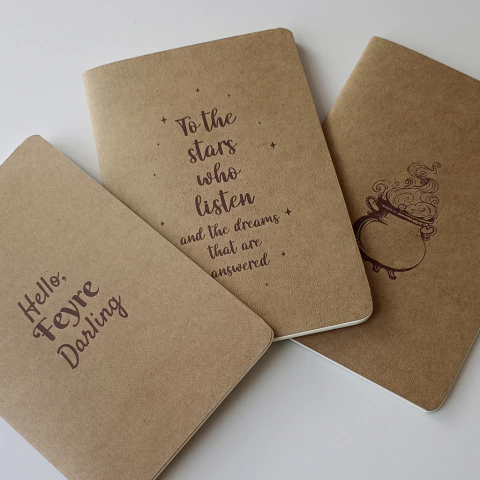 To the
stars
who
listen
and the dreams
that are
answered
Hello,
Feyre
Darling